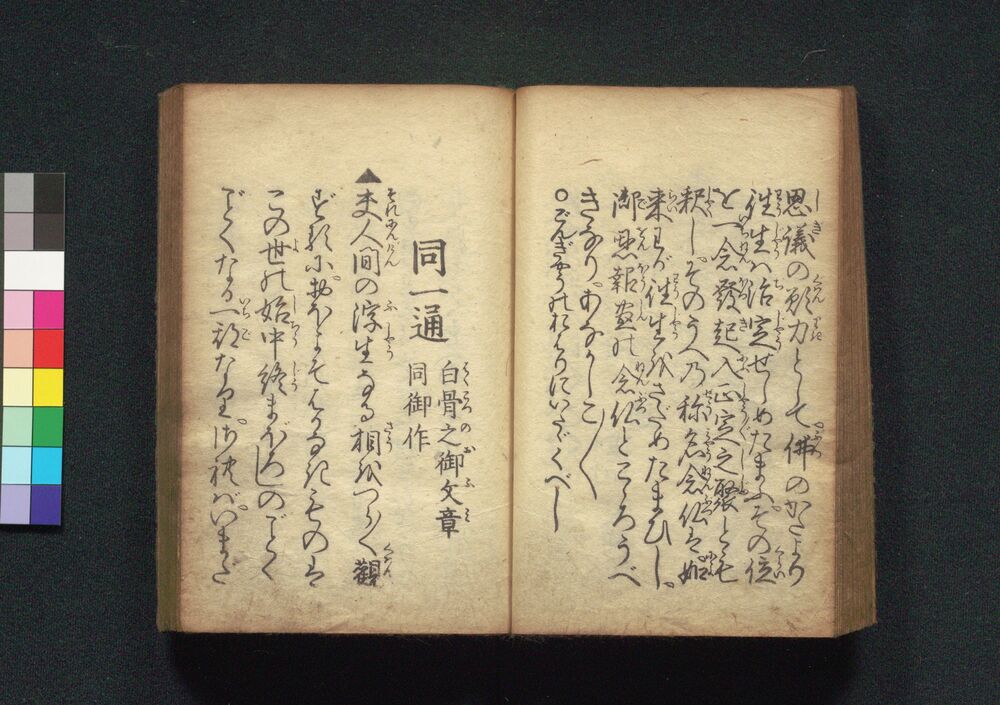 思議の願力として佛のかたより
往生ハ治定せしめたまふ。その位
を一念發起入正定之聚とも
釈し。そのうへの称名念仏は如
来わが往生をさだめたまひし。
御恩報盡の念仏とこころうべ
きなり。あなかしこ〳〵
○ごんぎやうのをはりにいたゞくべし
同一通
白骨之御文章
同御作
▲夫人間の浮生なる相をつら〳〵觀
ずるに。おほよそはかなきものは
この世の始中終まぼろしのごと
くなる一期なり。されば。いまだ